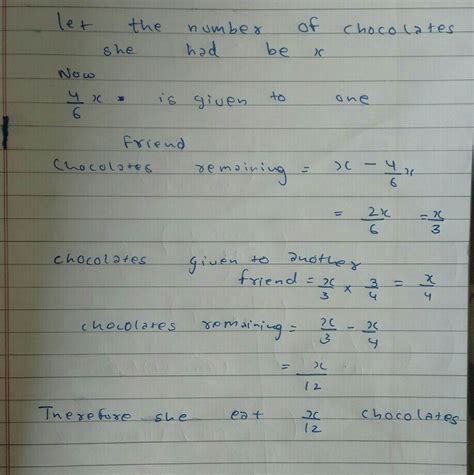 let the number of chocolates
she had be x
Now
4/6 x is given to one
friend
chocolates remaining = x - 4/6 x
= 2x/6 = x/3
chocolates given to another
friend = x/3 × 3/4 = x/4
chocolates remaining = x/3 - x/4
= x/12
Therefore she eat x/12 chocolates